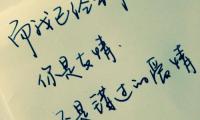 而我已经
你是友情
还是错过的爱情